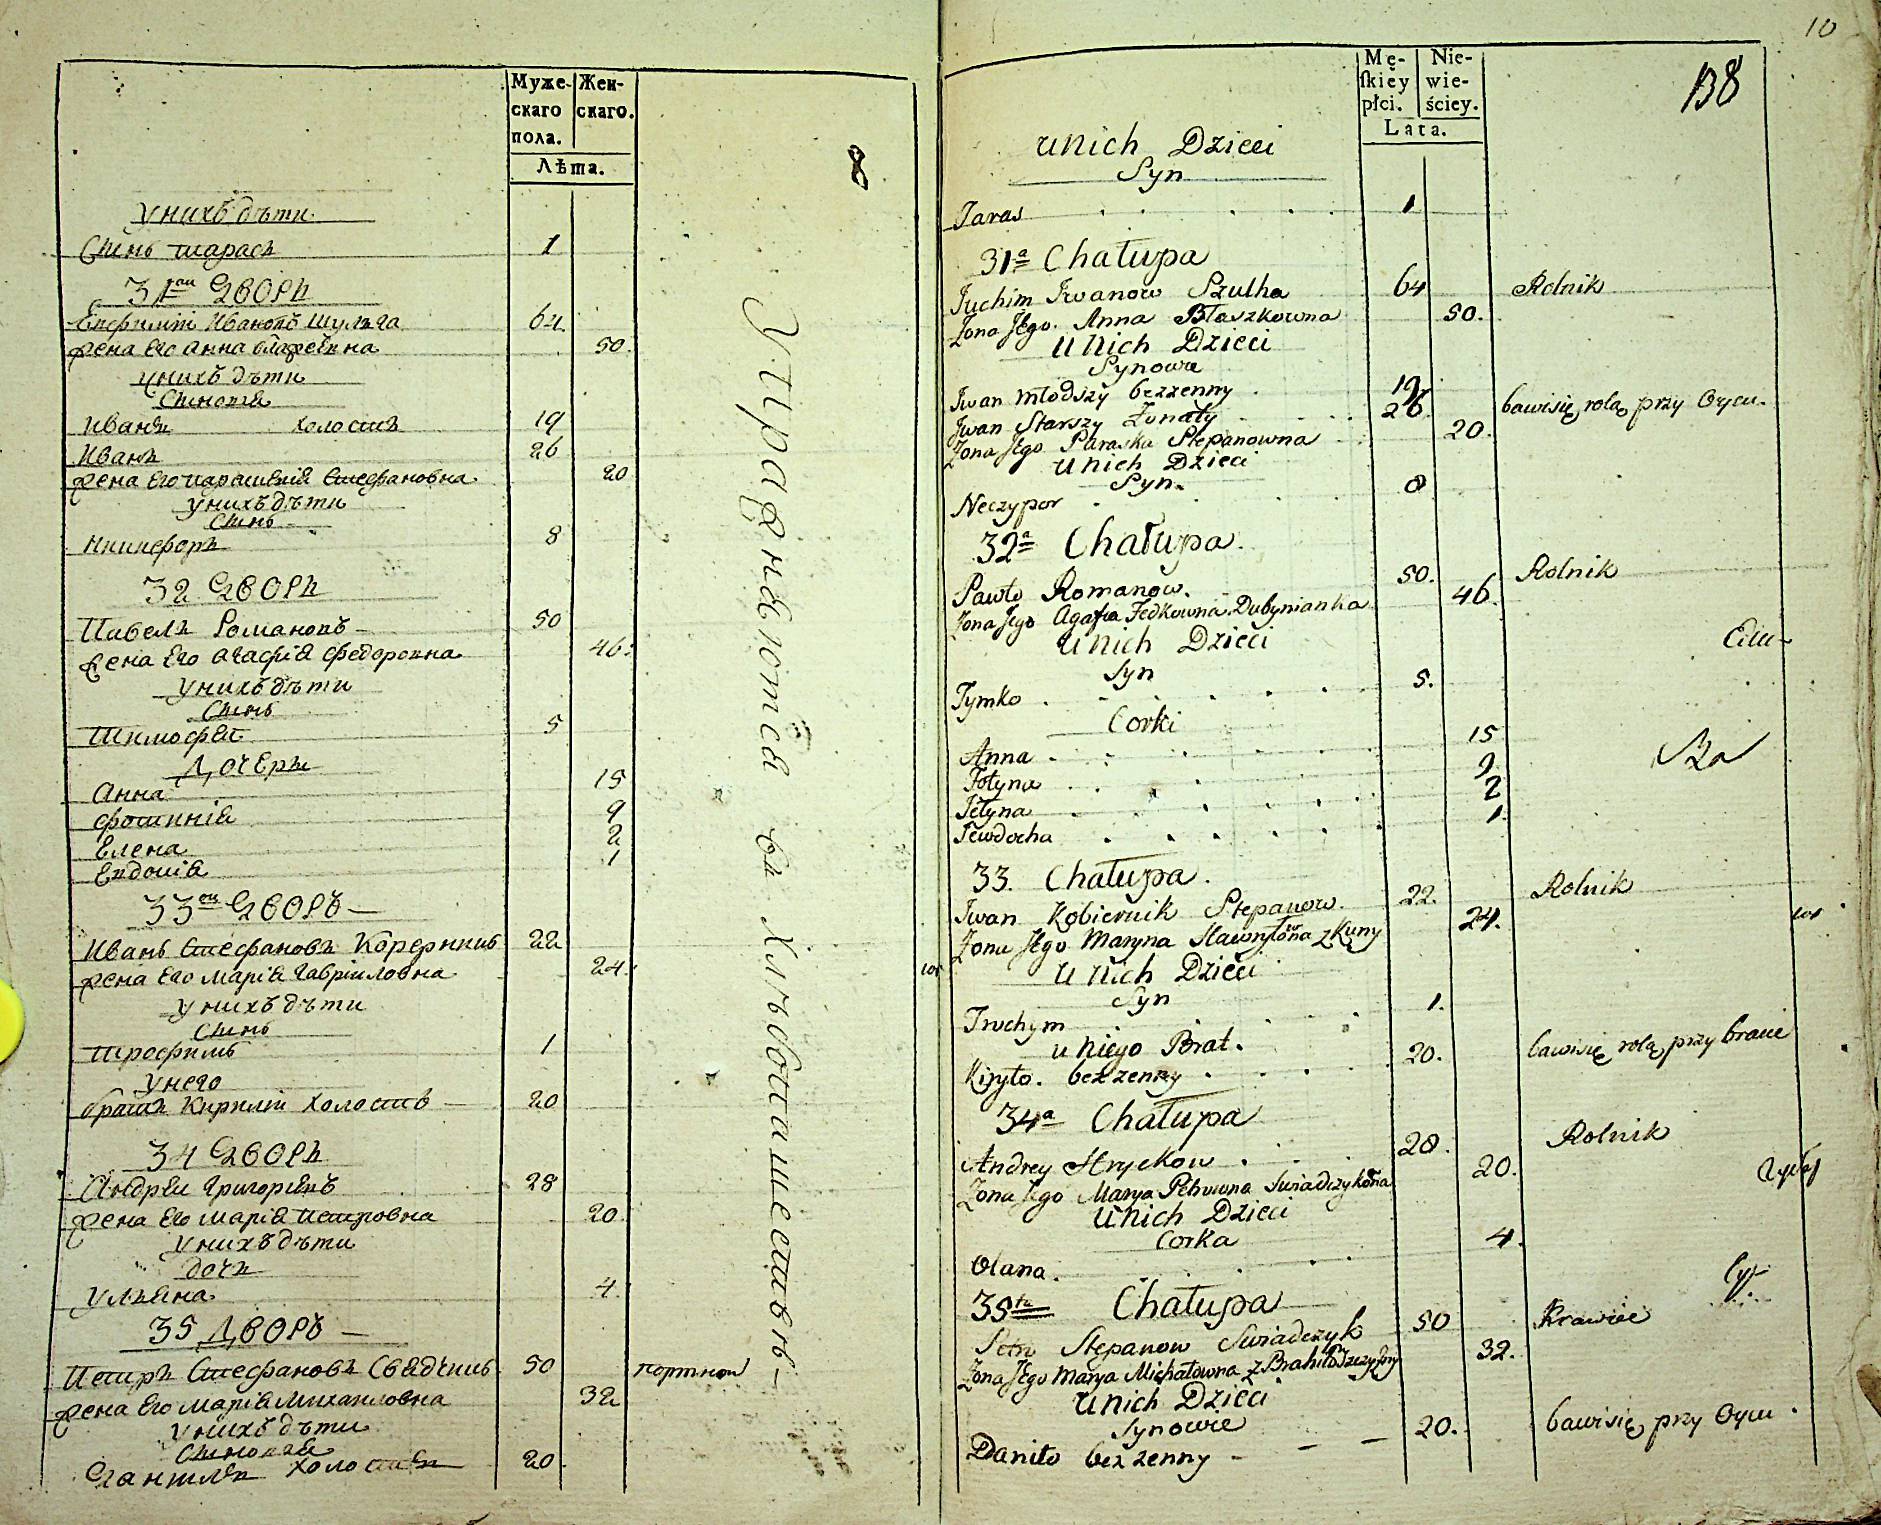 Муже-
скаго
пола.
Жен-
скаго.
Лѣта.
8
унихъ дѣти
Сынъ тарасъ 1
31ои Дворъ
Евфимій Ивановъ Шульга 64
жена Его анна власовна 50
унихъ дѣти
Сыновья
Иванъ холостъ 19
Иванъ 26
жена Его параскевія Стефановна 20
унихъ дѣти
Сынъ
Никифоръ 8
32 Дворъ
Павелъ Романовъ 50
жена Его агафія федоровна 46.
унихъ дѣти
Сынъ
Тимофей 5
Дочеры
Анна 15
фотинія 9
Елена 2
Евдокія 1
33ои Дворъ
Иванъ Стефановъ 22
жена Его марія гавріиловна 24.
унихъ дѣти
Сынъ
трофимъ 1
унего
братъ Кирилій холостъ 20
34 Дворъ
Андрей григорьевъ 28
жена Его марія петровна 20
унихъ дѣти
дочь
ульяна 4
35 Дворъ
Петръ Стефановъ Свядчикъ 50 портной
жена Его марія михаиловна 32
унихъ дѣти
Сыновья
Даниилъ холостъ 20
Упражняются въ хлѣбопашествѣ
10
138
Mę-
ſkiey
płci.
Nie-
wie-
ściey.
Lata.
u Nich Dzieci
Syn
Taras 1
31a Chałupa
Juchim Iwanow Szulha 64 Rolnik
Zona Jego Anna Błaszkowna 50.
u Nich Dzieci
Synowie
Iwan młodszy bezzenny 19 bawi się rolą przy Oycu.
Iwan Starszy Zonaty 26.
Zona Jego Paraska Stepanowna 20.
u Nich Dzieci
Syn.
Neczypor 8
32a Chałupa.
Pawło Romanow. 50. Rolnik
Zona Jego Agafia Fedkowna Dubynianka 46.
u Nich Dzieci
Syn
Tymko 5.
Corki
Anna 15
Fotyna 9
Jełyna 2
Jewdocha 1.
33. Chałupa.
Iwan Kobiernik Stepanow. 22. Rolnik
Zona Jego Maryna Hawryłowna z Kuny 24.
u Nich Dzieci
Syn
Trochym 1.
u Niego Brat.
Kiryło. bezzenny 20. bawi się rolą przy bracie
34a Chałupa
Andrey Hryckow 28. Rolnik
Zona Jego Marya Petrowna 20.
u Nich Dzieci
Corka
Olana. 4.
35ta Chałupa
Petro Stepanow Swiadczyk 50 Krawiec
Zona Jego Marya Michałowna 32.
u Nich Dzieci
Synowie
Daniło bezzenny 20. bawi się przy Oycu.